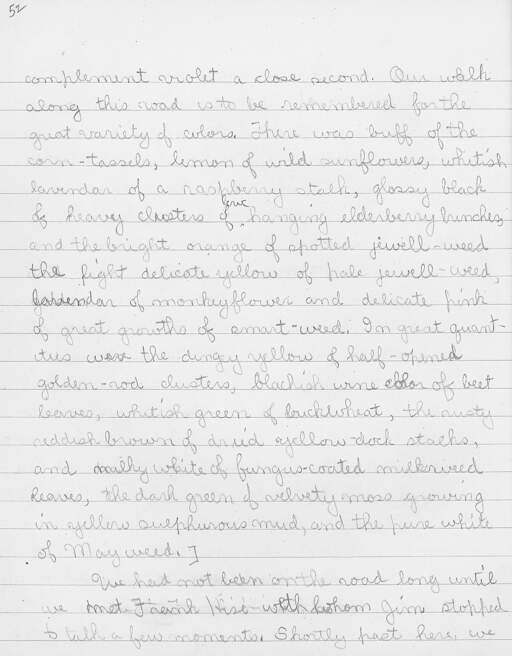 52
complement violet a close second. Our walk
along this road is to be remembered for the
great variety of colors. There was buff of the
corn-tassels, lemon of wild sunflowers, whitish
lavendar of a raspberry stalk, glossy black
of heavy clusters of low hanging elderberry bunches,
and the bright orange of spotted jewell-weed
the light delicate yellow of pale jewell-weed,
lavendar of monkeyflower and delicate pink
of great growths of smart-weed. In great quant-
ties were the dingy yellow of half-opened
golden-rod clusters, blackish wine color of beet
leaves, whitish green of buckwheat, the rusty
reddish brown of dried yellow-dock stalks,
and milky white of fungus-coated milkweed
leaves, the dark green of velvety moss growing
in yellow sulphurous mud, and the pure white
of May weed.]
We had not been on the road long until
we met Frank with whom Jim stopped
to talk a few moments. Shortly past here, we